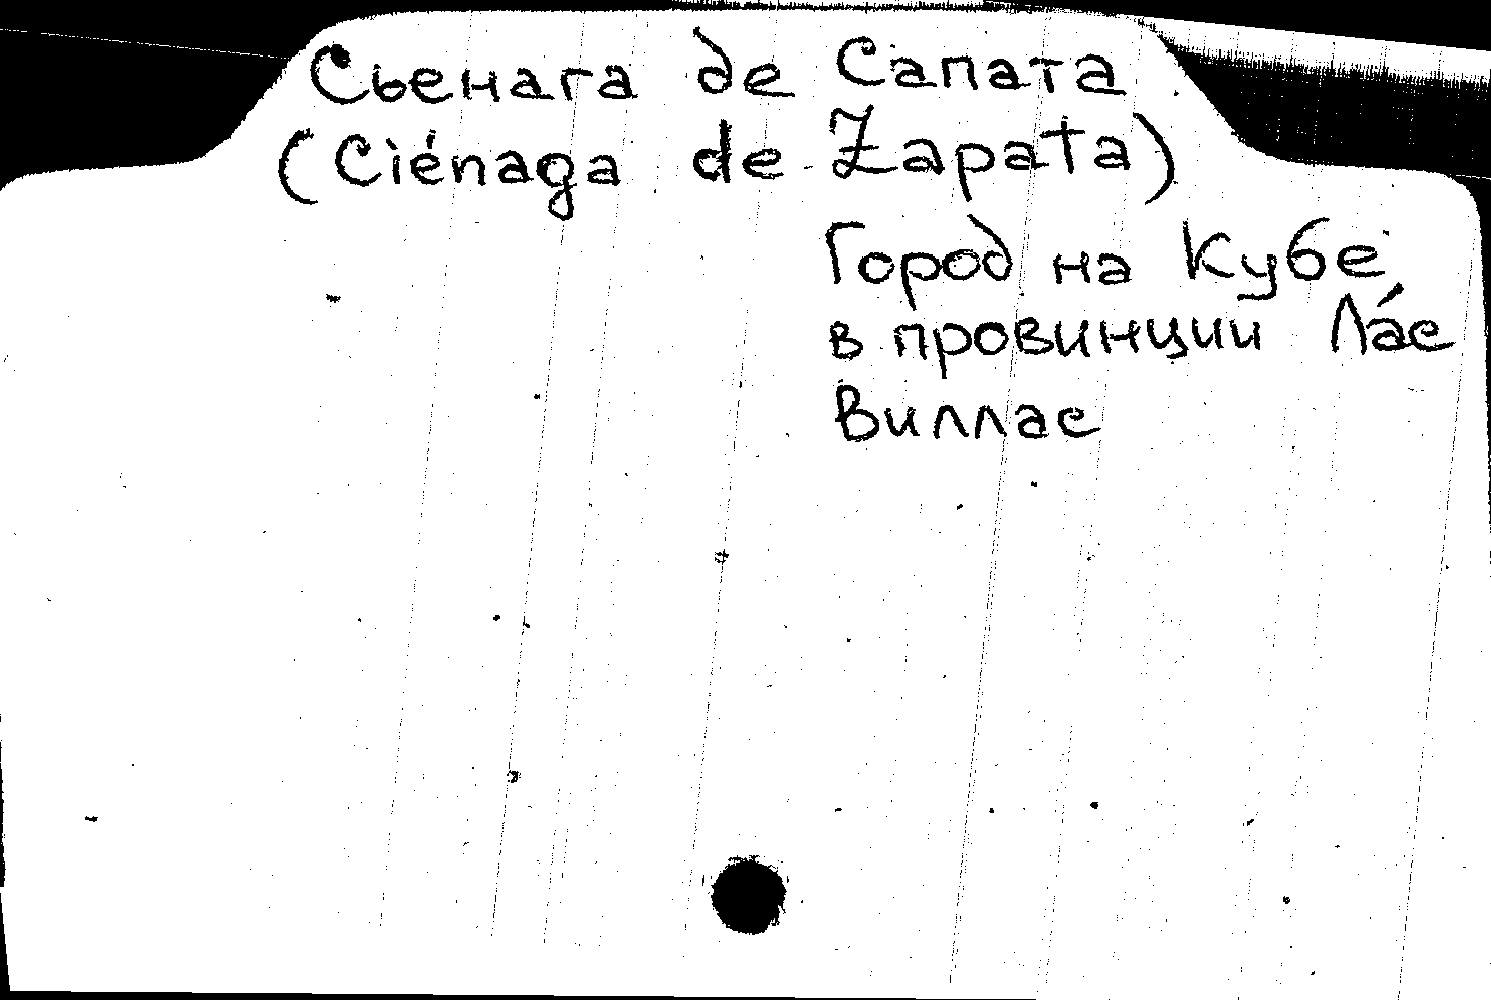 Сьенага де Сапата
(Ciénaga de Zapata)
Город на Кубе
в провинции Ла́с
Виллас